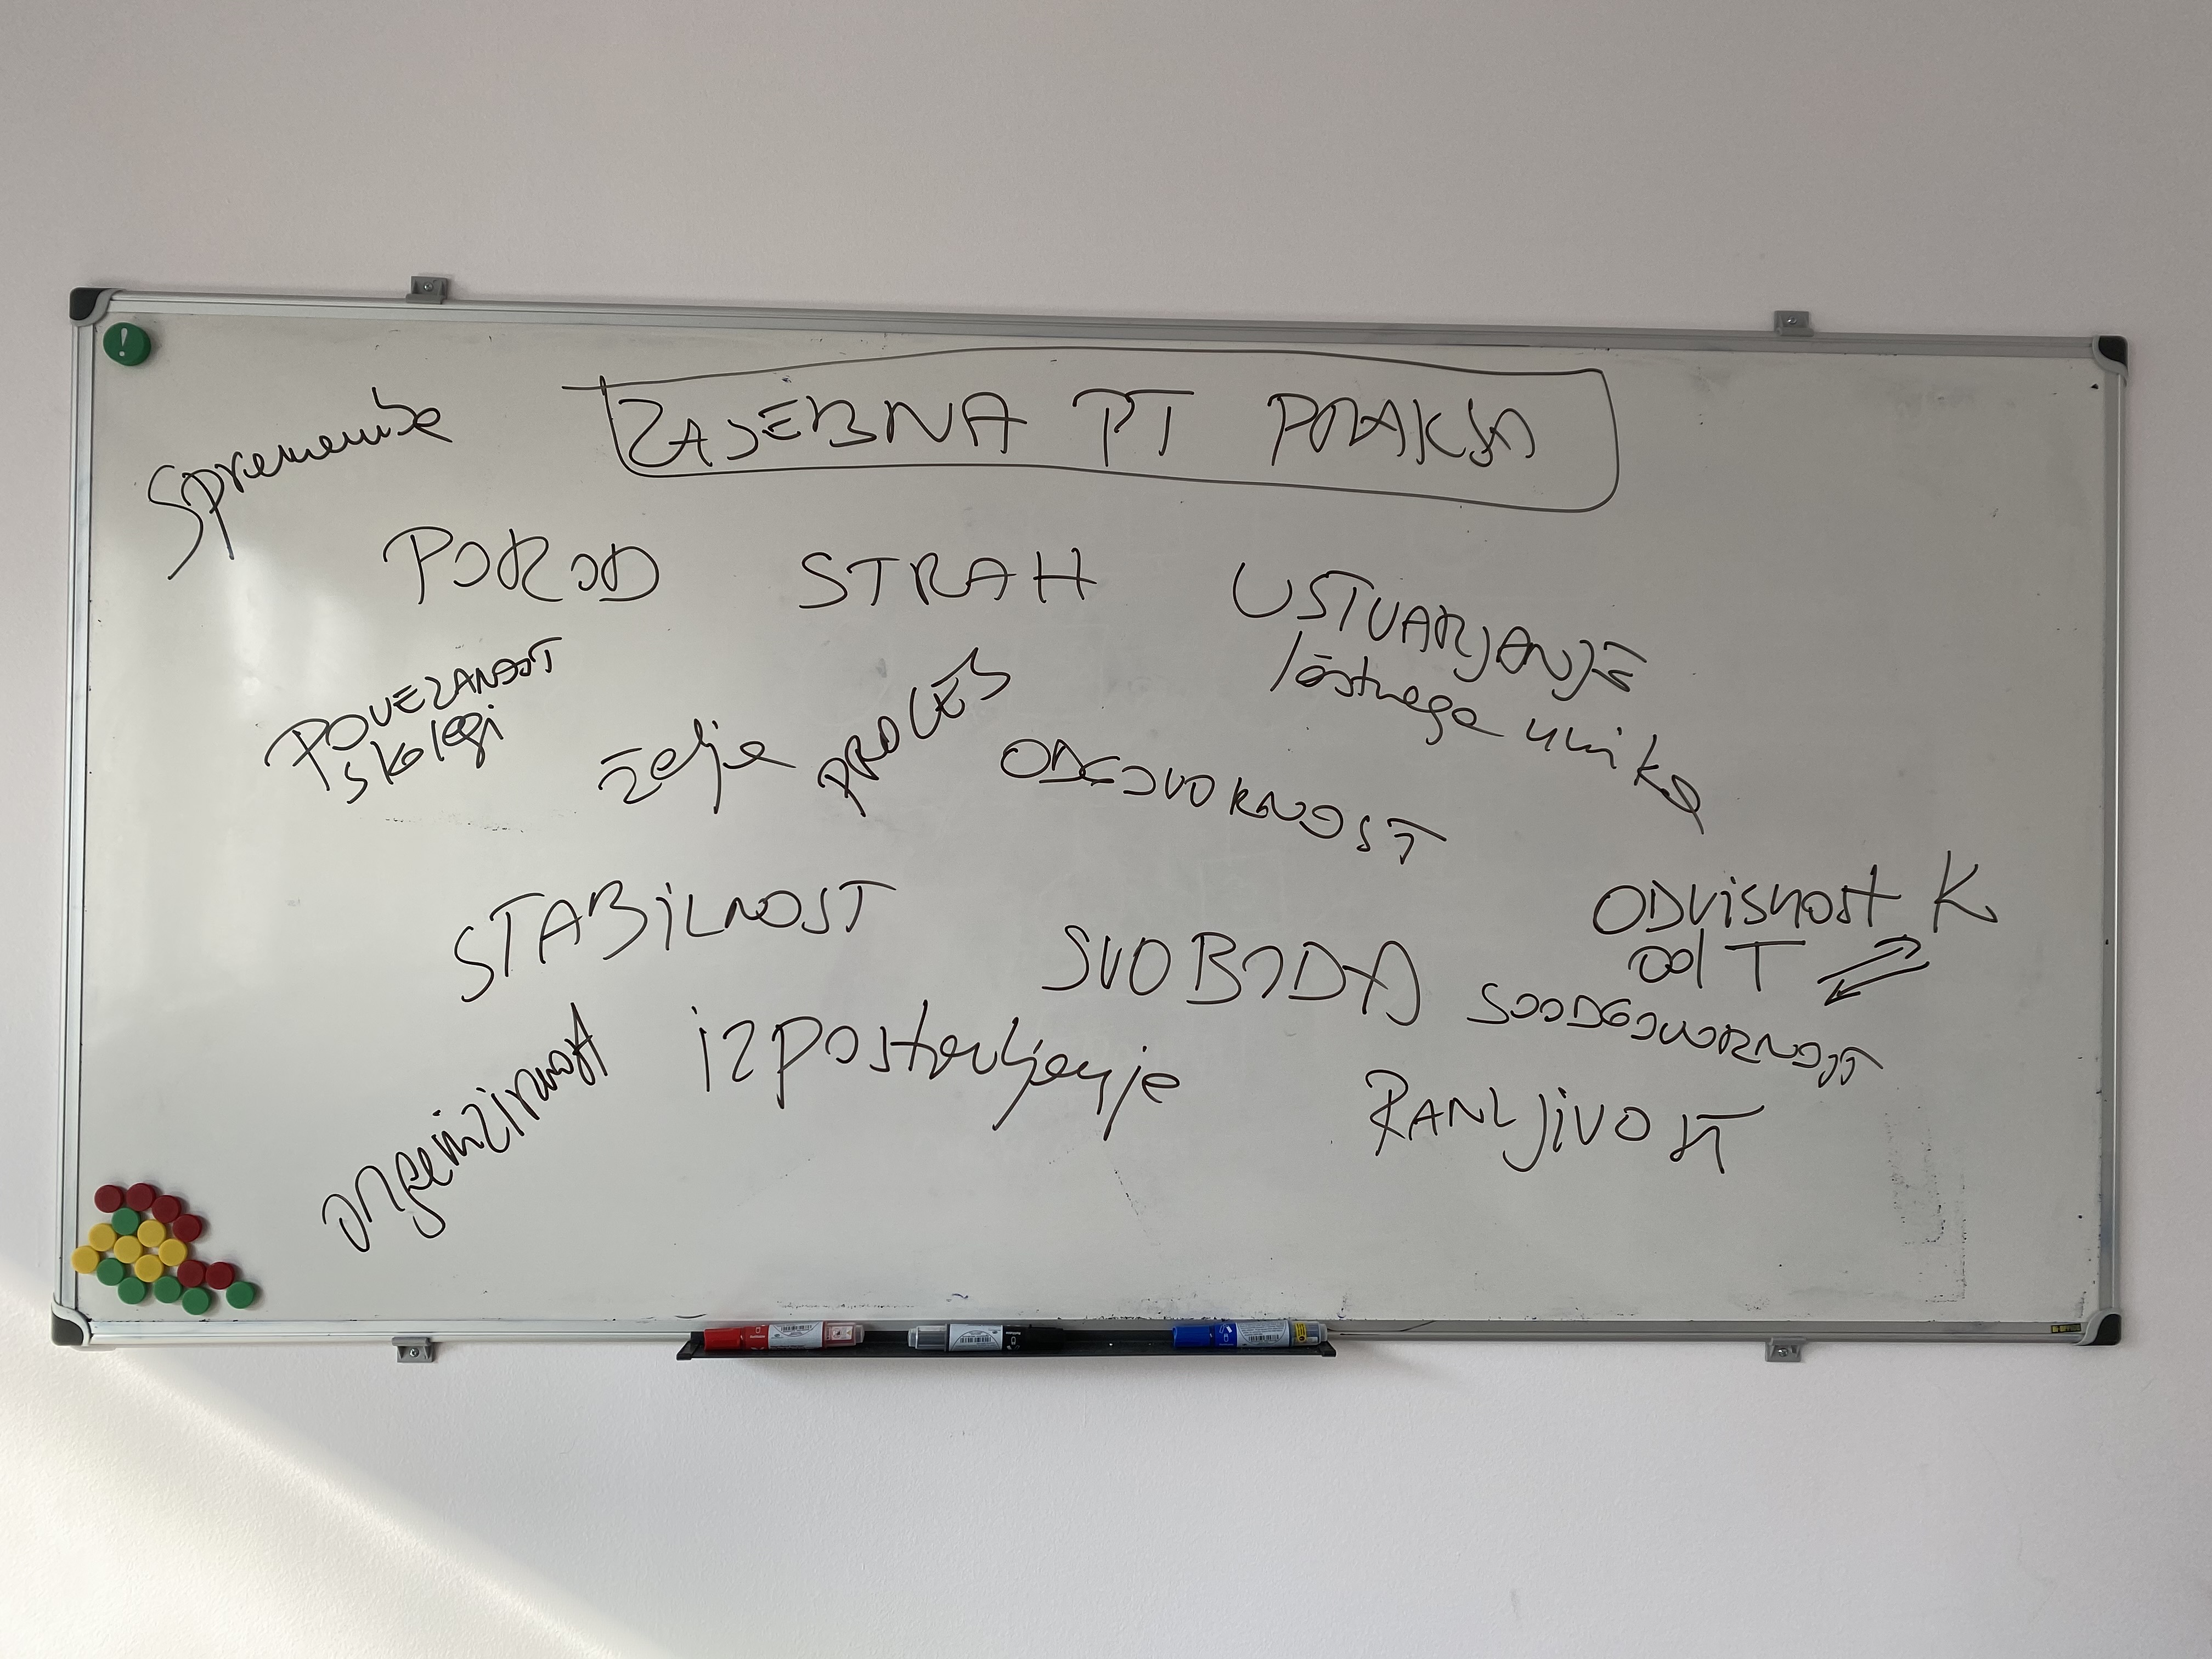 ZASEBNA PT PRAKSA
Spremembe
POROD
STRAH
USTVARJANJE
lastnega urnika
POVEZANOST
s kolegi
želje
PROCES
ODGOVORNOST
STABiLNOST
SVOBODA
ODvisnost K
od T
SOODGOVORNOST
organiziranost
izpostavljenje
RANLJiVOST